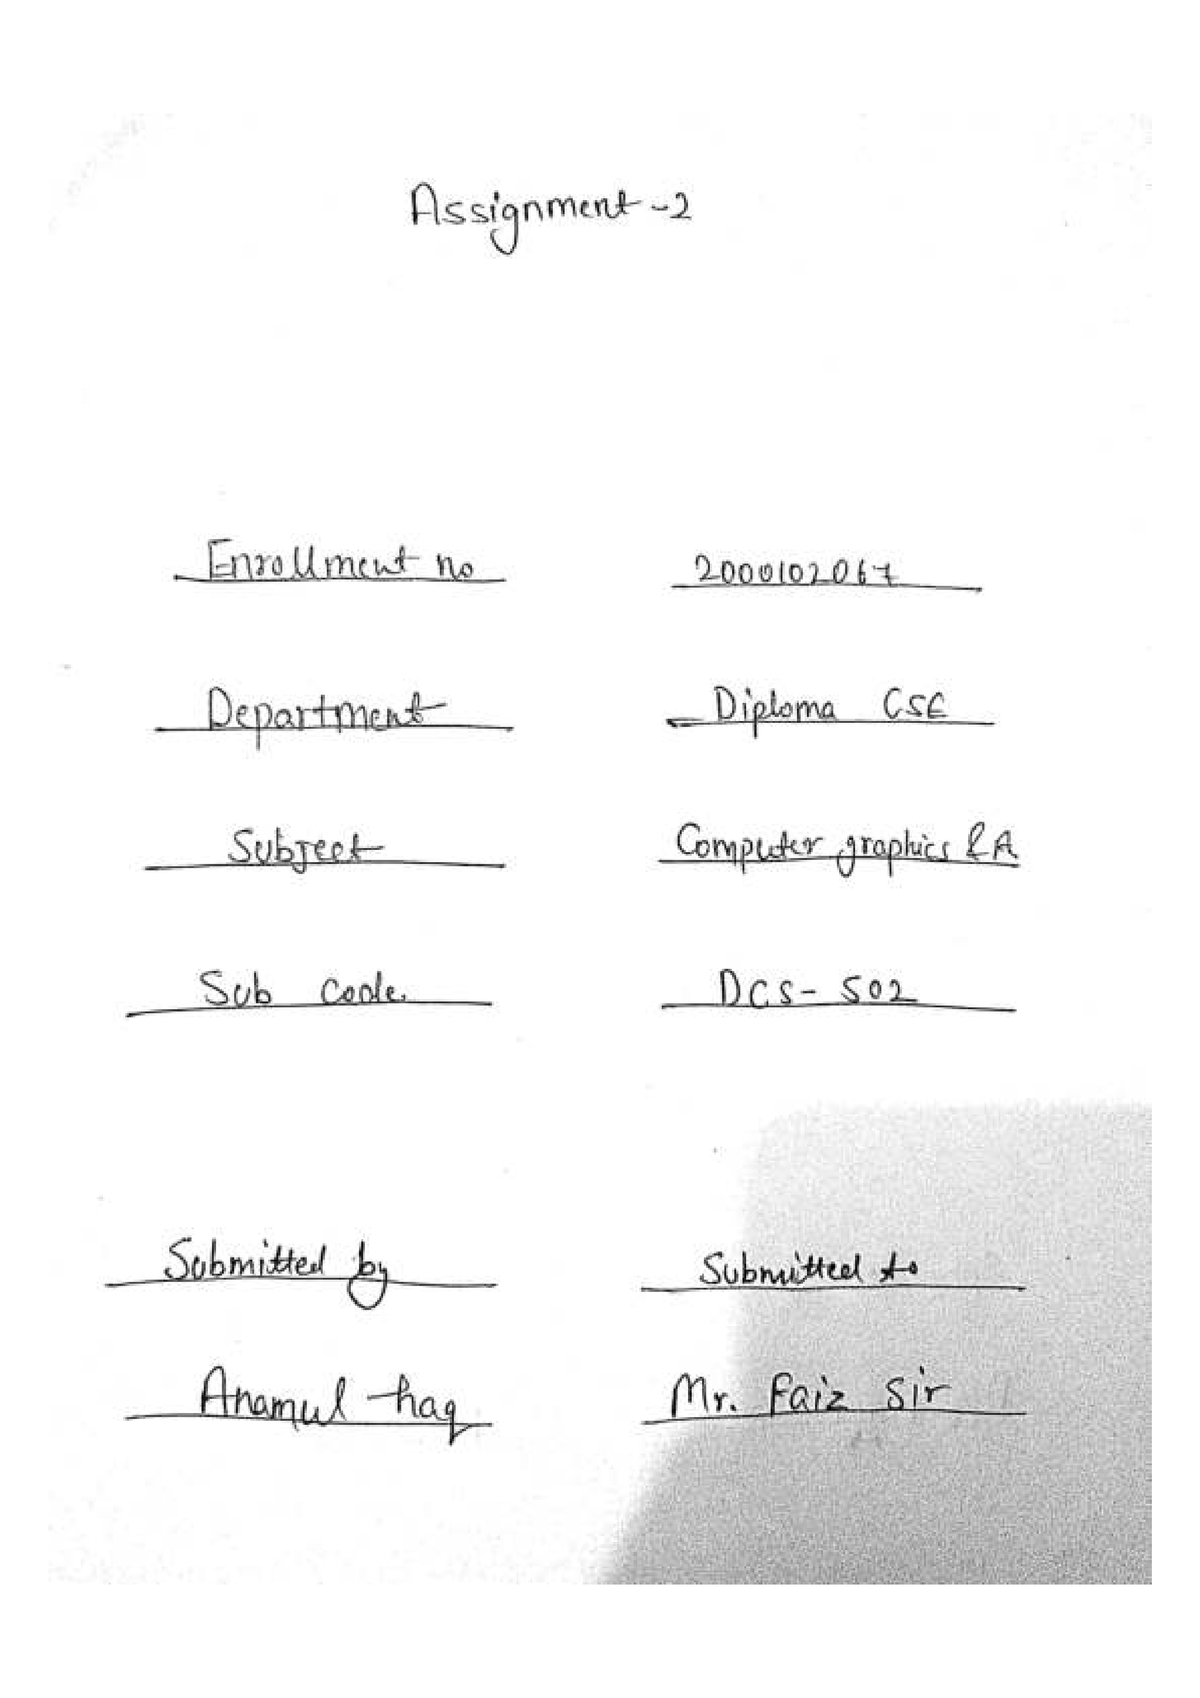 Assignment-2
Enrollment no 2000102067
Department Diploma CSE
Subject Computer graphics & A
Sub code. DCS-502
Submitted by Submitted to
Anamul haq Mr. Faiz Sir